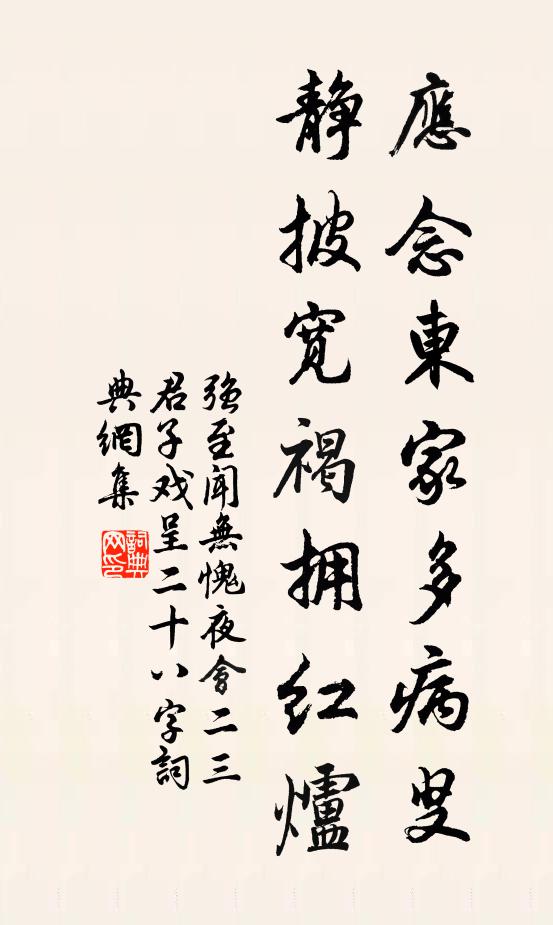 應念東家多病叟
静披寬褐拥紅爐
强至聞無愧夜會二三
君子戏呈二十八字詞
典網集
詞典
网印